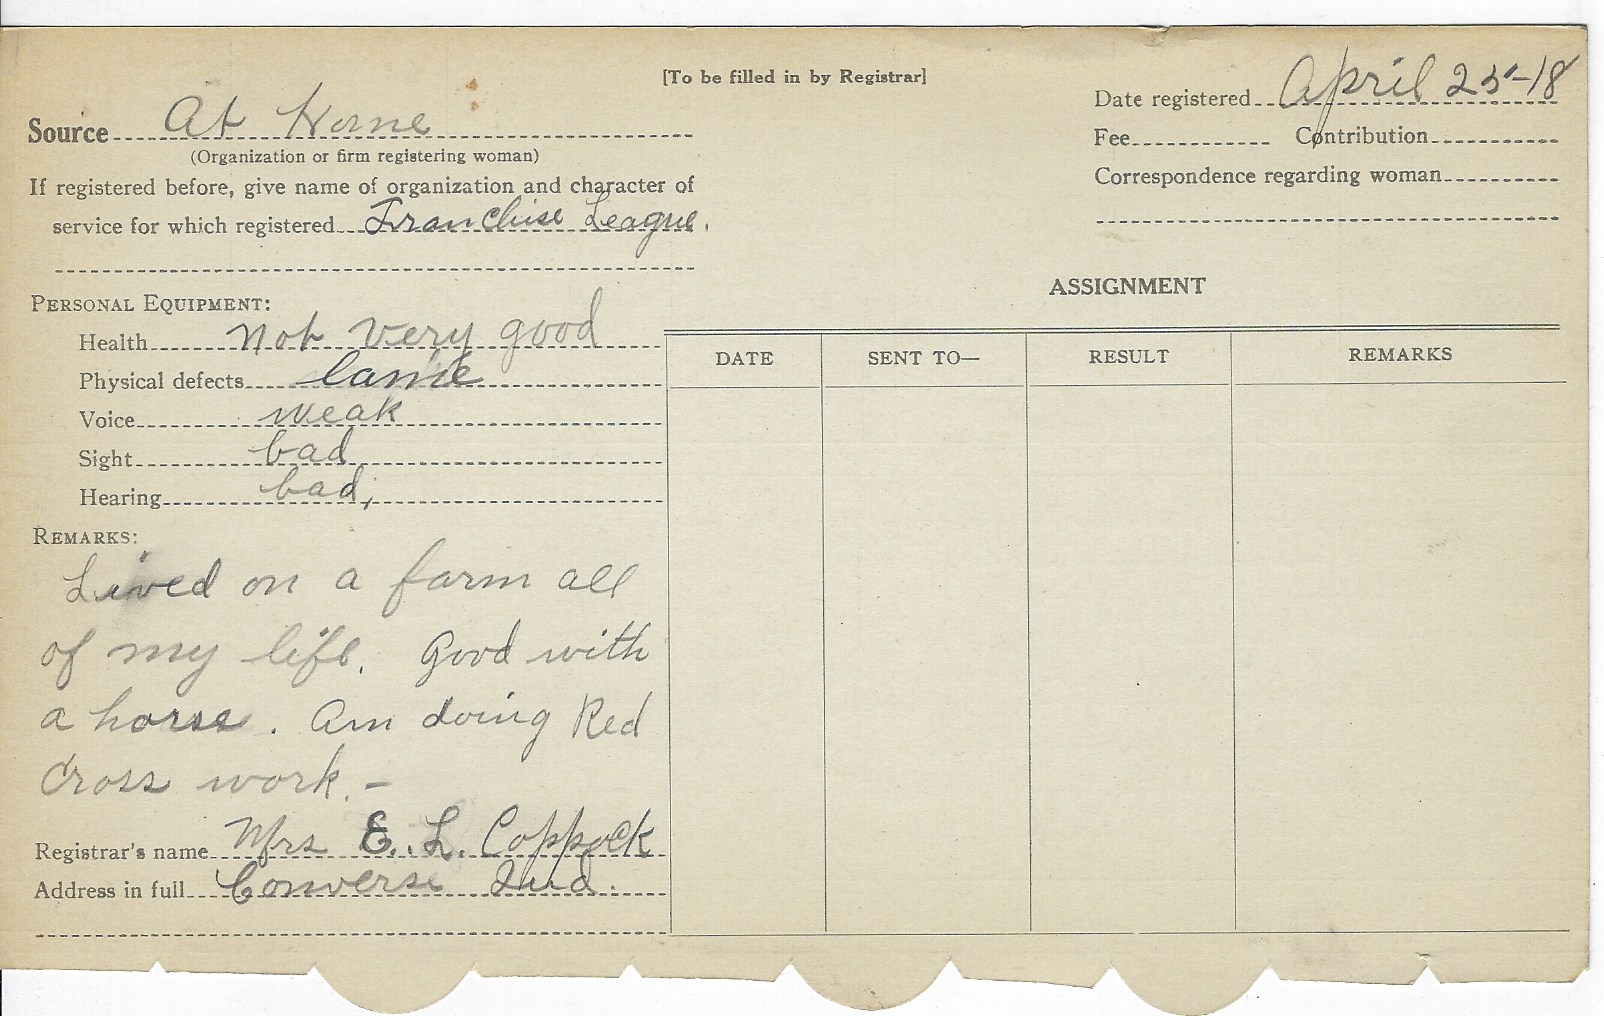 [To be filled in by Registrar]
Date registered April 25-18
Source At Home
(Organization or firm registering woman)
Fee Contribution
If registered before, give name of organization and character of
service for which registered Franchise League.
Correspondence regarding woman
PERSONAL EQUIPMENT:
Health not very good
Physical defects lame
Voice weak
Sight bad
Hearing bad,
REMARKS:
Lived on a farm all
of my life. Good with
a horse. Am doing Red
Cross work. -
Registrar's name Mrs E. L. Coppock
Address in full Converse Ind.
ASSIGNMENT
DATE SENT TO— RESULT REMARKS